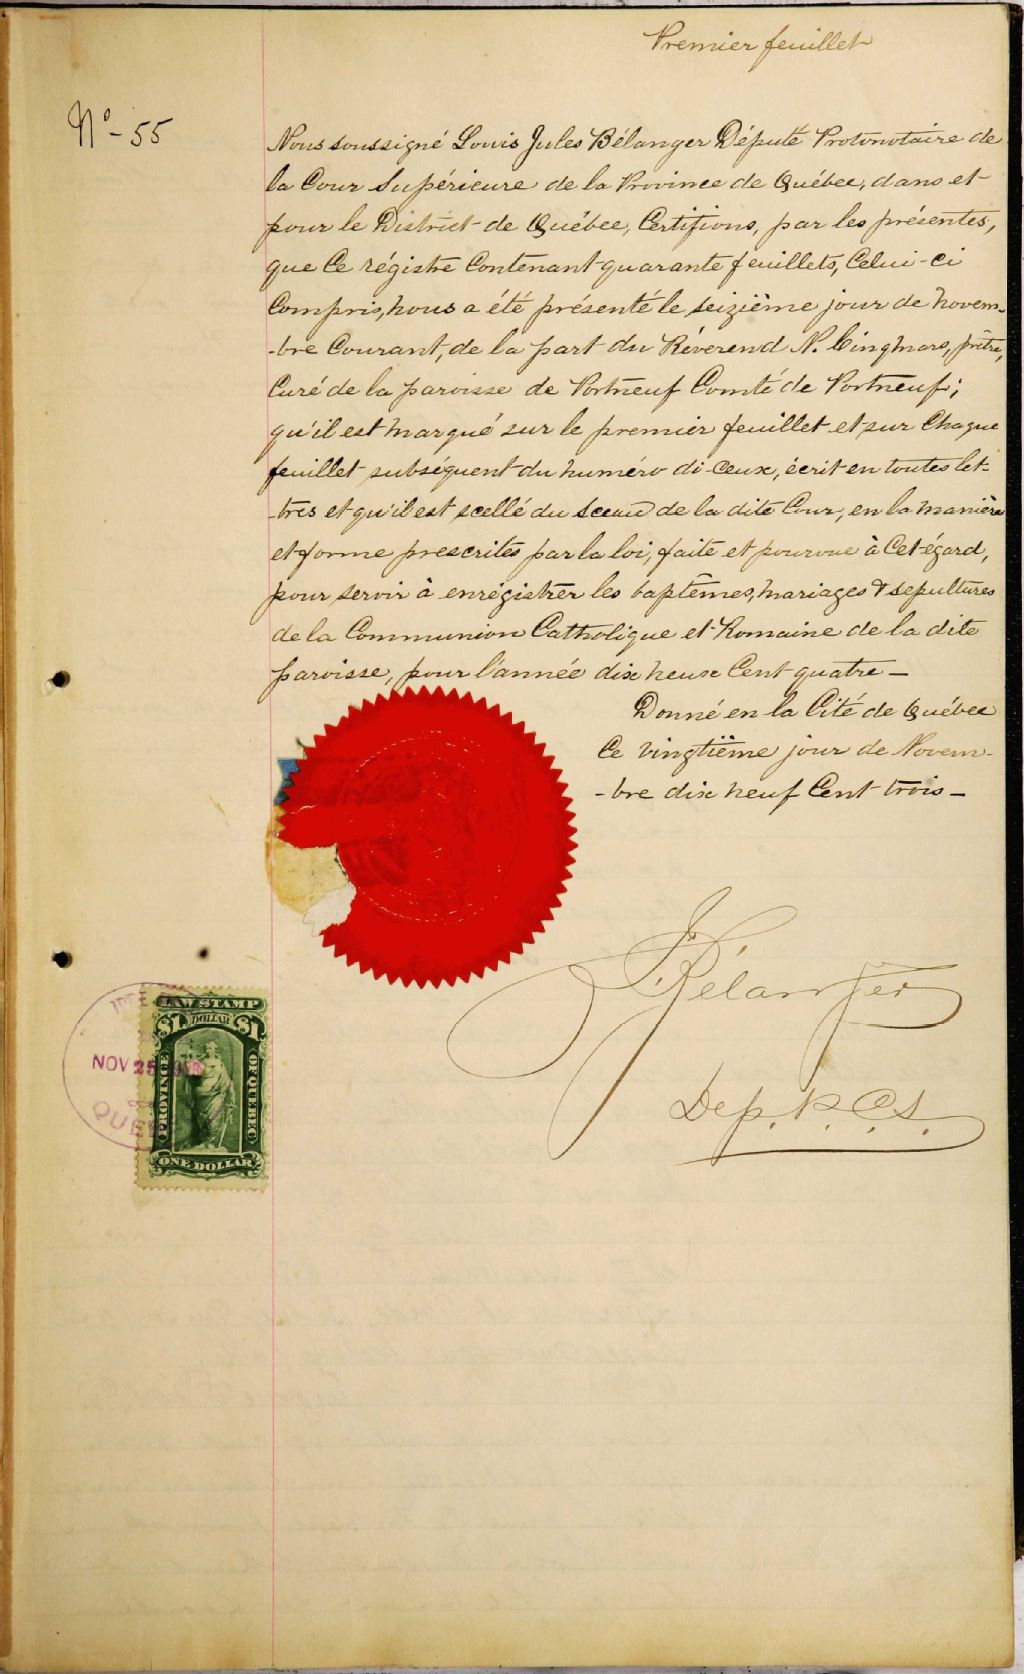 Premier feuillet
No - 55
Nous soussigné Louis Jules Bélanger Député Protonotaire de
la Cour Supérieure de la Province de Québec, dans et
pour le District de Québec, Certifions, par les présentes,
que Ce régistre Contenant quarante feuillets, Celui-ci
Compris, nous a été présenté le seizième jour de novem-
-bre Courant, de la part du Révérend N. Cinqmars, prêtre,
Curé de la paroisse de Portneuf Comté de Portneuf;
qu'il est marqué sur le premier feuillet et sur Chaque
feuillet subséquent du numéro di-ceux, écrit en toutes let-
-tres et qu'il est scellé du sceau de la dite Cour, en la manière
et forme prescrites par la loi, faite et pourvue à Cet égard,
pour servir à enrégistrer les baptêmes, mariages & sepultures
de la Communion Catholique et Romaine de la dite
paroisse, pour l'année dix neuf Cent quatre -
Donné en la Cité de Québec
Ce vingtième jour de Novem-
-bre dix neuf Cent trois -
Bélanger
Dep. P. C. S.
LAW STAMP
$1 DOLLAR $1
PROVINCE OF QUEBEC
NOV 25
ONE DOLLAR